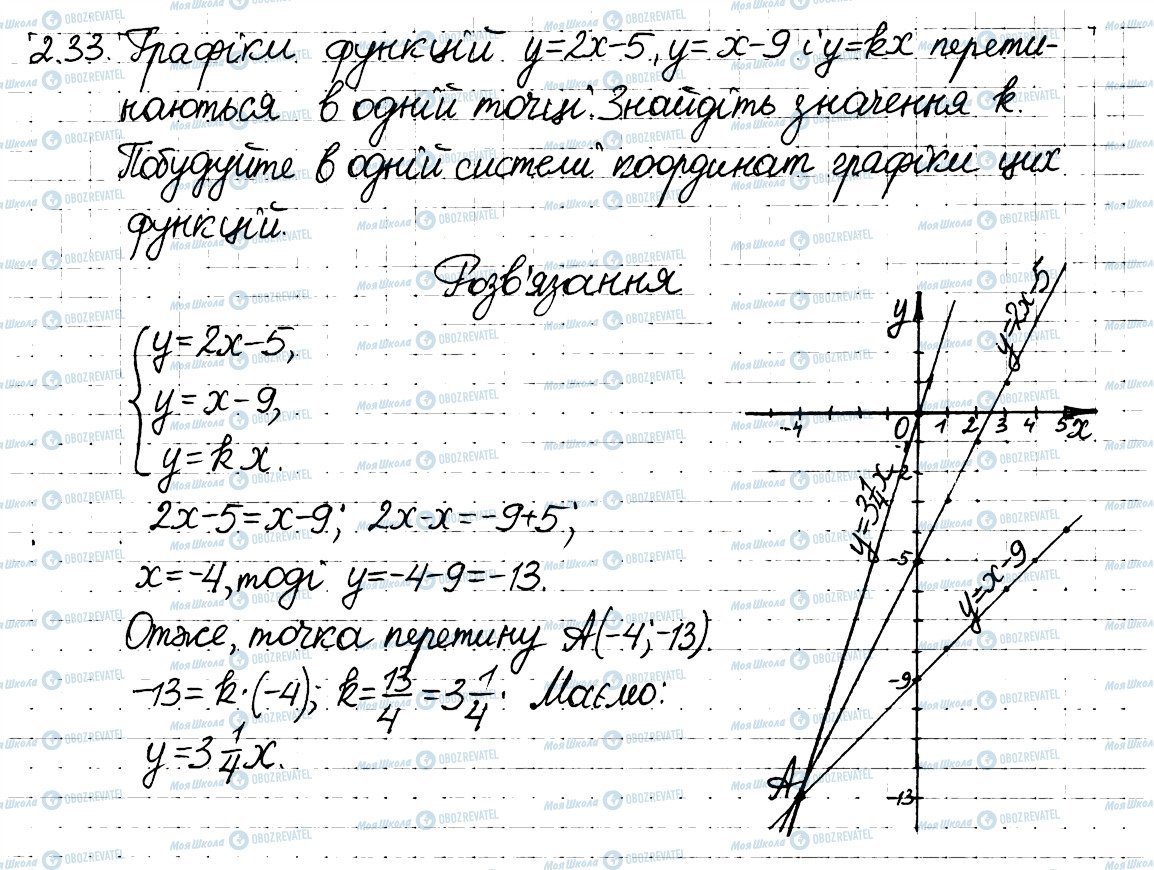 2.33. Графіки функцій y=2x-5, y= x-9 і y=kx перети-
наються в одній точці. Знайдіть значення k.
Побудуйте в одній системі координат графіки цих
функцій.
Розв'язання
y=2x-5,
y= x-9,
y=kx.
2x-5=x-9; 2x-x=-9+5;
x=-4, тоді y=-4-9=-13.
Отже, точка перетину A(-4;-13).
-13=k·(-4); k=13/4=3 1/4. Маємо:
y=3 1/4 x.
y
y=2x-5
-4 0 1 2 3 4 5 x
-2
y=3 1/4 x
-5
y=x-9
-9
A
-13
Моя Школа OBOZREVATEL